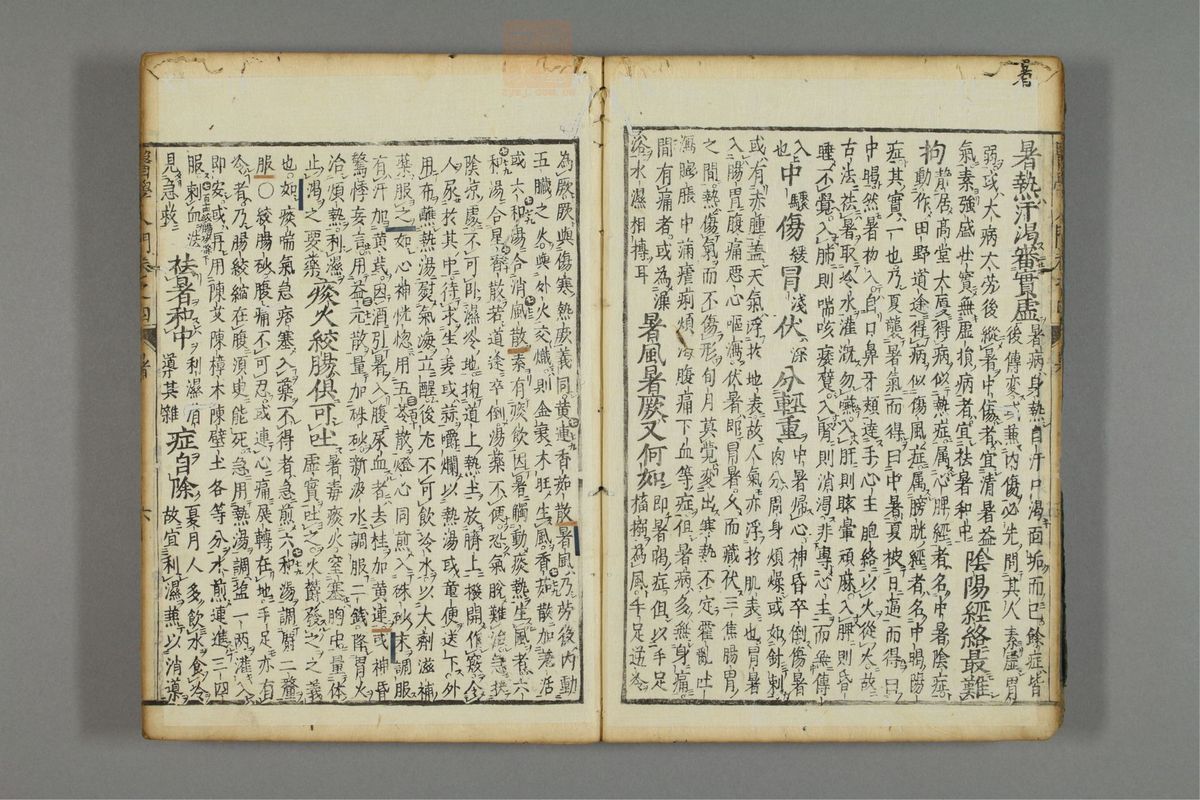 暑
暑熱汗渴審實虛 暑病身熱自汗口渴面垢而已餘症皆後傳變或兼內傷必先問其人素虛胃
弱或大病大勞後縱暑中傷者宜清暑益氣素強盛壯實無虛損病者宜祛暑和中 陰陽經絡最難
拘 靜居高堂大厦得病似熱症属心脾經者名中暑陰症動作田野道途得病似傷風症属膀胱經者名中暍陽
症其實一也乃夏龍暑氣而得曰中暑夏被日逼而得曰
中暍然暑初入自口鼻牙頰達手心主胞絡以火從火故
古法祛暑取冷水灌漑勿嚥入肝則眩暈頑麻入脾則昏
睡不覺入肺則喘咳痿躄入腎則消渴非專心主而無傳
入也 中驟傷緩冒淺伏深分輕重 中暑歸心神昏卒倒傷暑肉分周身煩燥或如針刺
或有赤腫盖天氣浮於地表故人氣亦浮於肌表也冒暑
入腸胃腹痛惡心嘔瀉伏暑即冒暑久而藏伏三焦腸胃
之間熱傷氣而不傷形旬月莫覺變出寒熱不定霍亂吐
瀉膨脹中滿瘧痢煩渴腹痛下血等症但暑病多無身痛
間有痛者或為澡浴水濕相搏耳 暑風暑厥又何如 即暑暍症但以手足搐搦為風手足逆冷
為厥厥與傷寒熱厥義同黃連香茹散暑風乃勞後內動
五臟之火與外火交熾則金衰木旺生風香茹散加羗活
或六和湯合消風散素有痰飲因暑觸動痰熱生風者六
和湯合星香散若道途卒倒湯藥不便恐氣脫難治急扶
陰凉處不可卧濕冷地掬道上熱土放臍上撥開作竅令
人尿於其中待求生姜或蒜嚼爛以熱湯或童便送下外
用布蘸熱湯熨氣海立醒後尤不可飲冷水以大劑滋補
藥服之如心神恍惚用五苓散燈心同煎入硃砂末調服
有汗加黃芪因酒引暑入腹尿血者去桂加黃連或神昏
驚悸妄言用益元散量加硃砂新汲水調服二錢降胃火
治煩熱利濕止渴之要藥 痰火絞腸俱可吐 暑毒痰火窒塞胸中量体虛實吐之火欝發之之義
也如痰喘氣急痞塞入藥不得者急煎六和湯調麝二釐
服○絞腸痧脹痛不可忍或連心痛展轉在地手足亦有
冷者乃腸絞縮在腹須臾能死急用熱湯調塩一兩灌入
即安或再用陳艾陳樟木陳壁土各等分水煎連進三四
服刺血法見急救 祛暑和中利濕宜導其雜症自除 夏月人多飲水食冷故宜利濕兼以消導